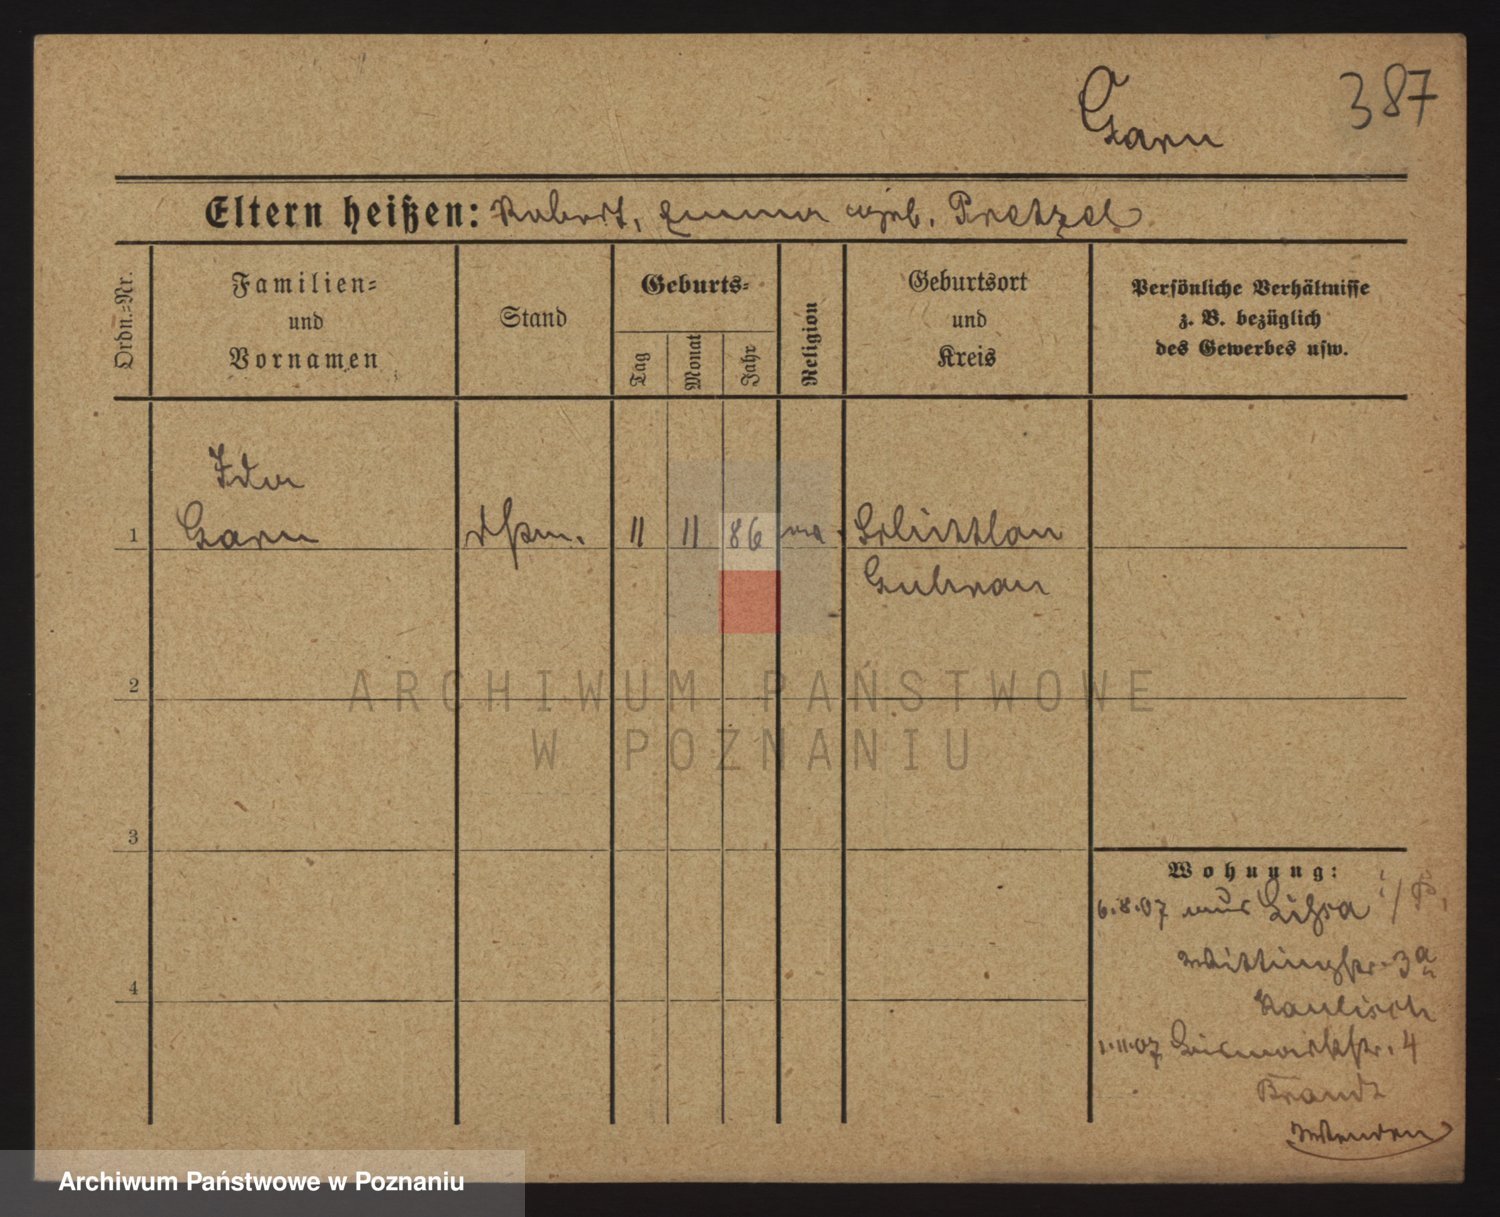 Garn
387
Eltern heißen: Robert, Emma geb. Pretzel
Ordn.-Nr.
Familien-
und
Vornamen
Stand
Geburts-
Tag
Monat
Jahr
Religion
Geburtsort
und
Kreis
Persönliche Verhältnisse
z. B. bezüglich
des Gewerbes usw.
Ida
1 Garn 11 11 86
Guhrau
2
ARCHIWUM PAŃSTWOWE
W POZNANIU
3
4
Wohnung:
6.8.07 aus Lissa i/P.
Wittingstr. 3a
Kaulisch
1.11.07 Bismarckstr. 4
Brandt
Wenden
Archiwum Państwowe w Poznaniu